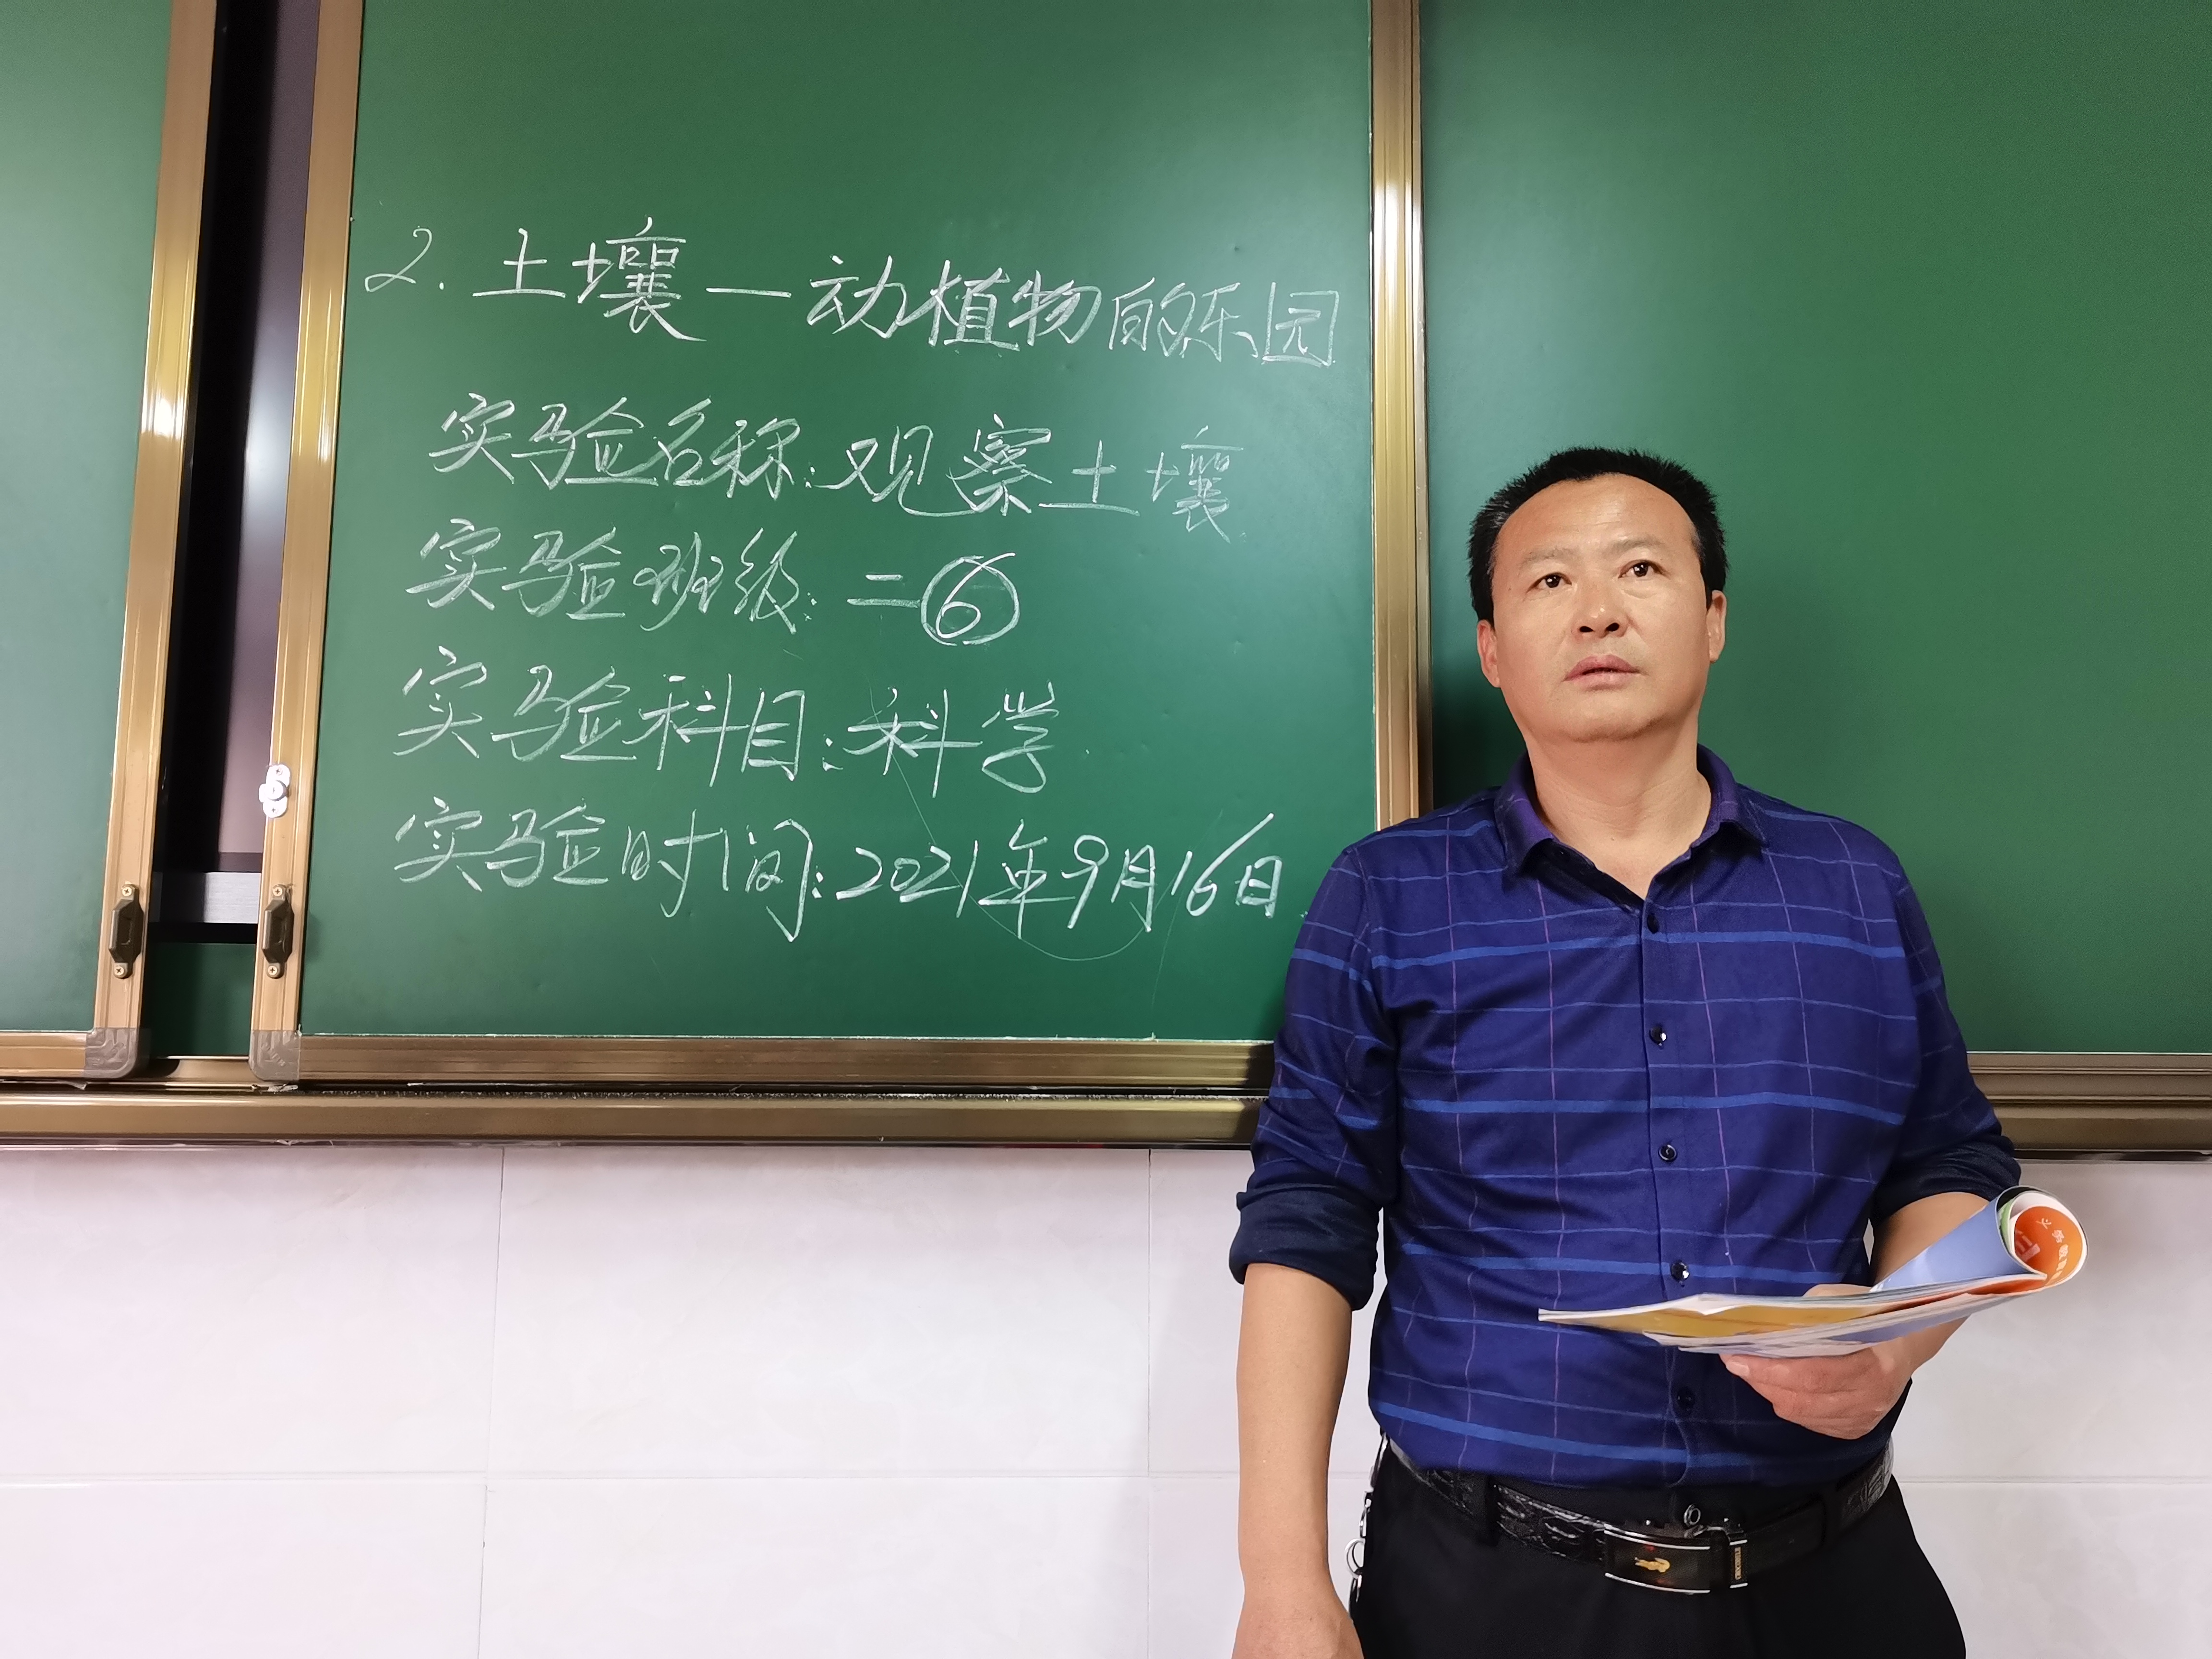 2.土壤—动植物的乐园
实验名称:观察土壤
实验班级:二⑥
实验科目:科学
实验时间:2021年9月16日.